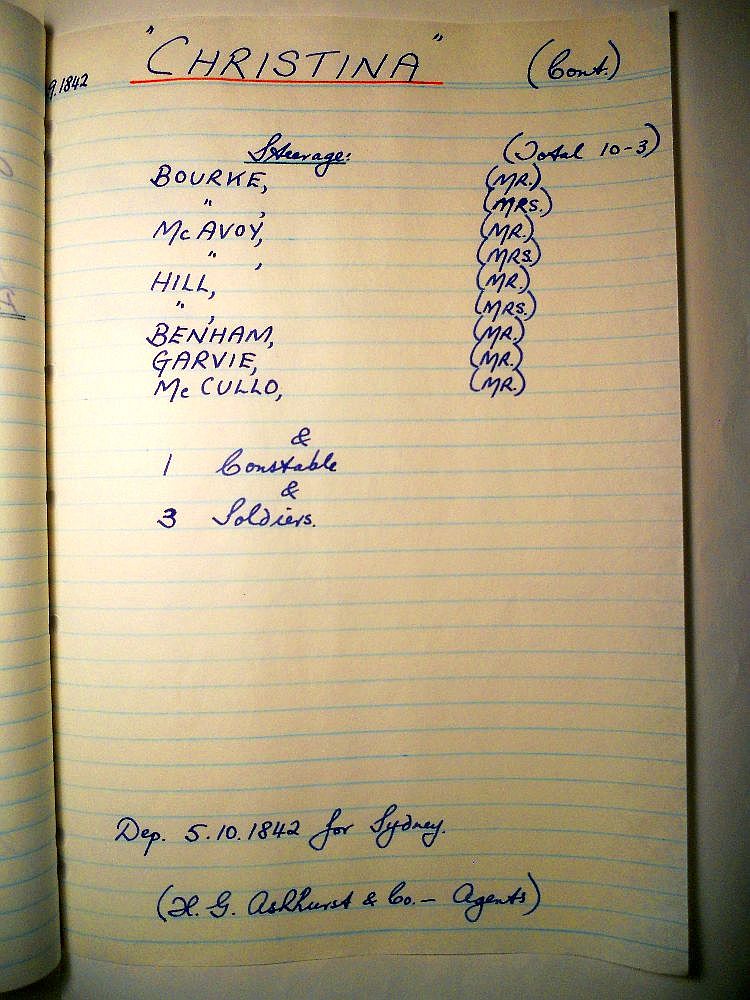 "CHRISTINA" (Cont.)
9.1842
Steerage: (Total 10-3)
BOURKE, (MR.)
" , (MRS.)
McAVOY, (MR.)
" , (MRS.)
HILL, (MR.)
" , (MRS.)
BENHAM, (MR.)
GARVIE, (MR.)
McCULLO, (MR.)
&
1 Constable
&
3 Soldiers.
Dep. 5.10.1842 for Sydney.
(H. G. Ashhurst & Co. - Agents)